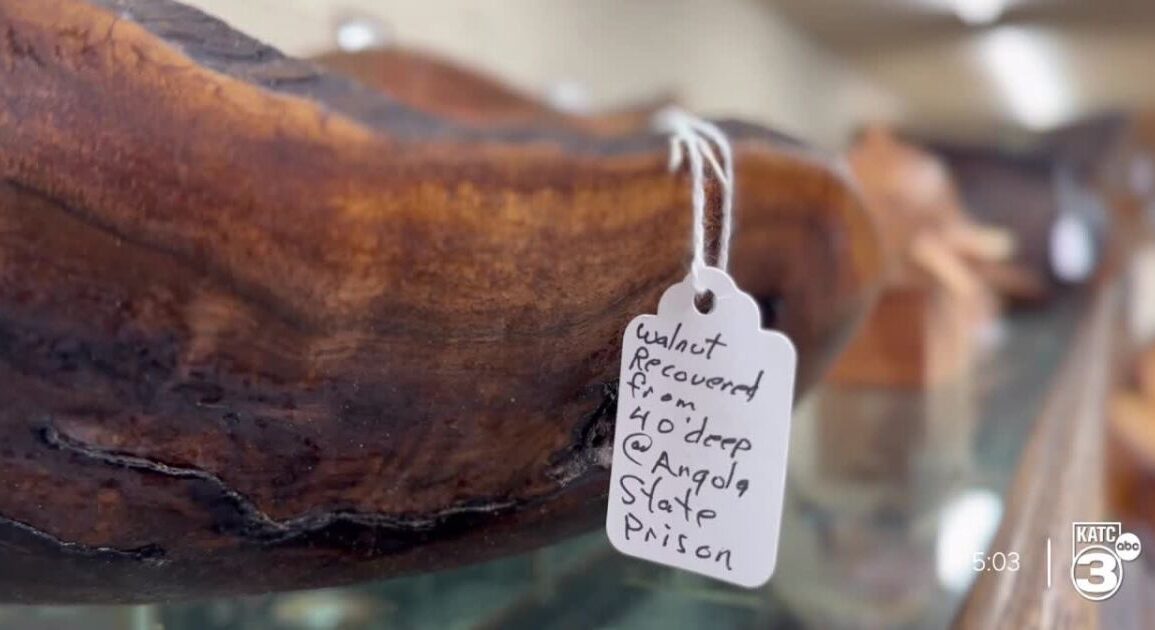 walnut
Recovered
from
40' deep
@ Angola
State
Prison
5:03
KATC
abc
3